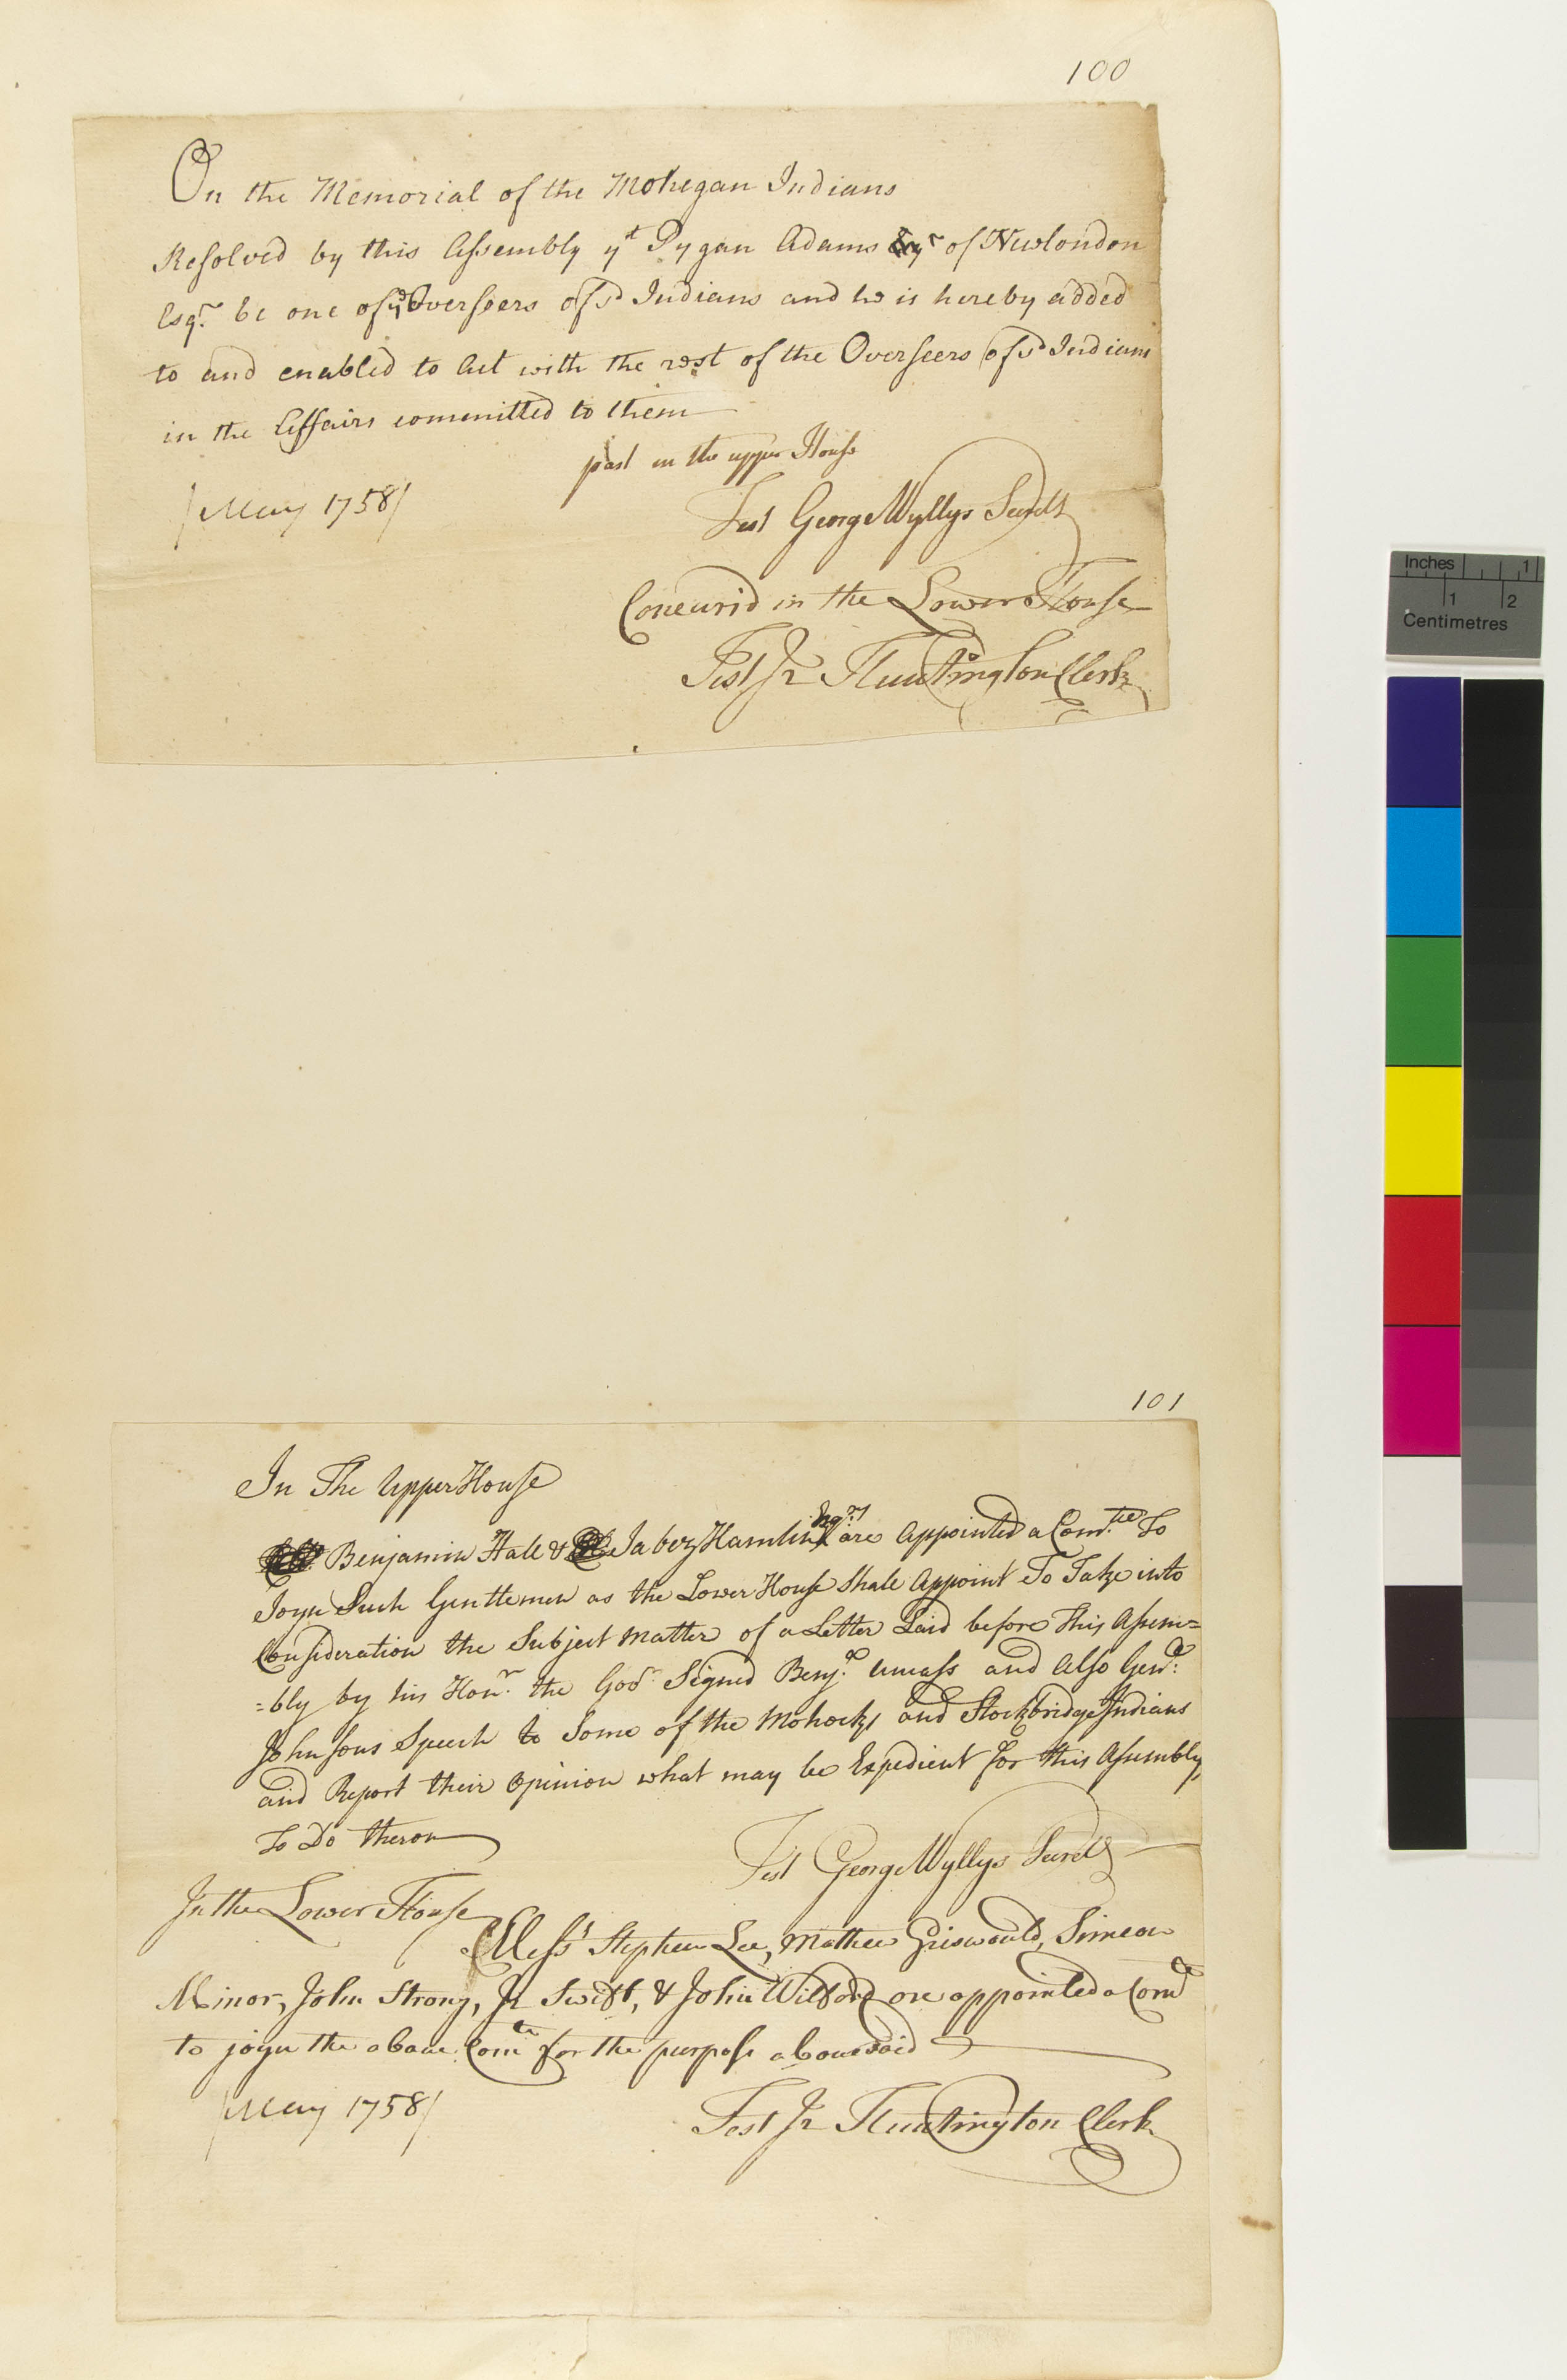 100
On the Memorial of the Mohegan Indians
Resolved by this Assembly yt Pygan Adams of Newlondon
Esqr. be one of ye Overseers of sd Indians and he is hereby added
to and enabled to Act with the rest of the Overseers of sd Indians
in the Affairs committed to them
past in the upper House
/May 1758/
Test George Wyllys Secrety
Concurid in the Lower House
Test Jr Huntington Clerk
101
In The Upper House
Benjamin Hall & Jabez Hamlin Esqrs are Appointed a Comtee. To
Joyn Such Genttemen as the Lower House Shall Appoint To Take into
Consideration the Subject Matter of a Letter Laid before This Assem=
=bly by his Honr. the Govr Signed Benja. and Also Genll:
Johnsons Speech to Some of the Mohocks and Stockbridge Indians
and Report their Opinion what may be Expedient for this Assembly
To Do theron
Test George Wyllys Secrety
In the Lower House
Messs Stephen Lee, Mathew Griswould, Simeon
Minor, John Strong, Jr Swift, & John Wilford are appointed a Comtee
to joyn the above Comtee for the purpose abovesaid
/May 1758/
Test Jr Huntington Clerk
Inches 1
1 2
Centimetres